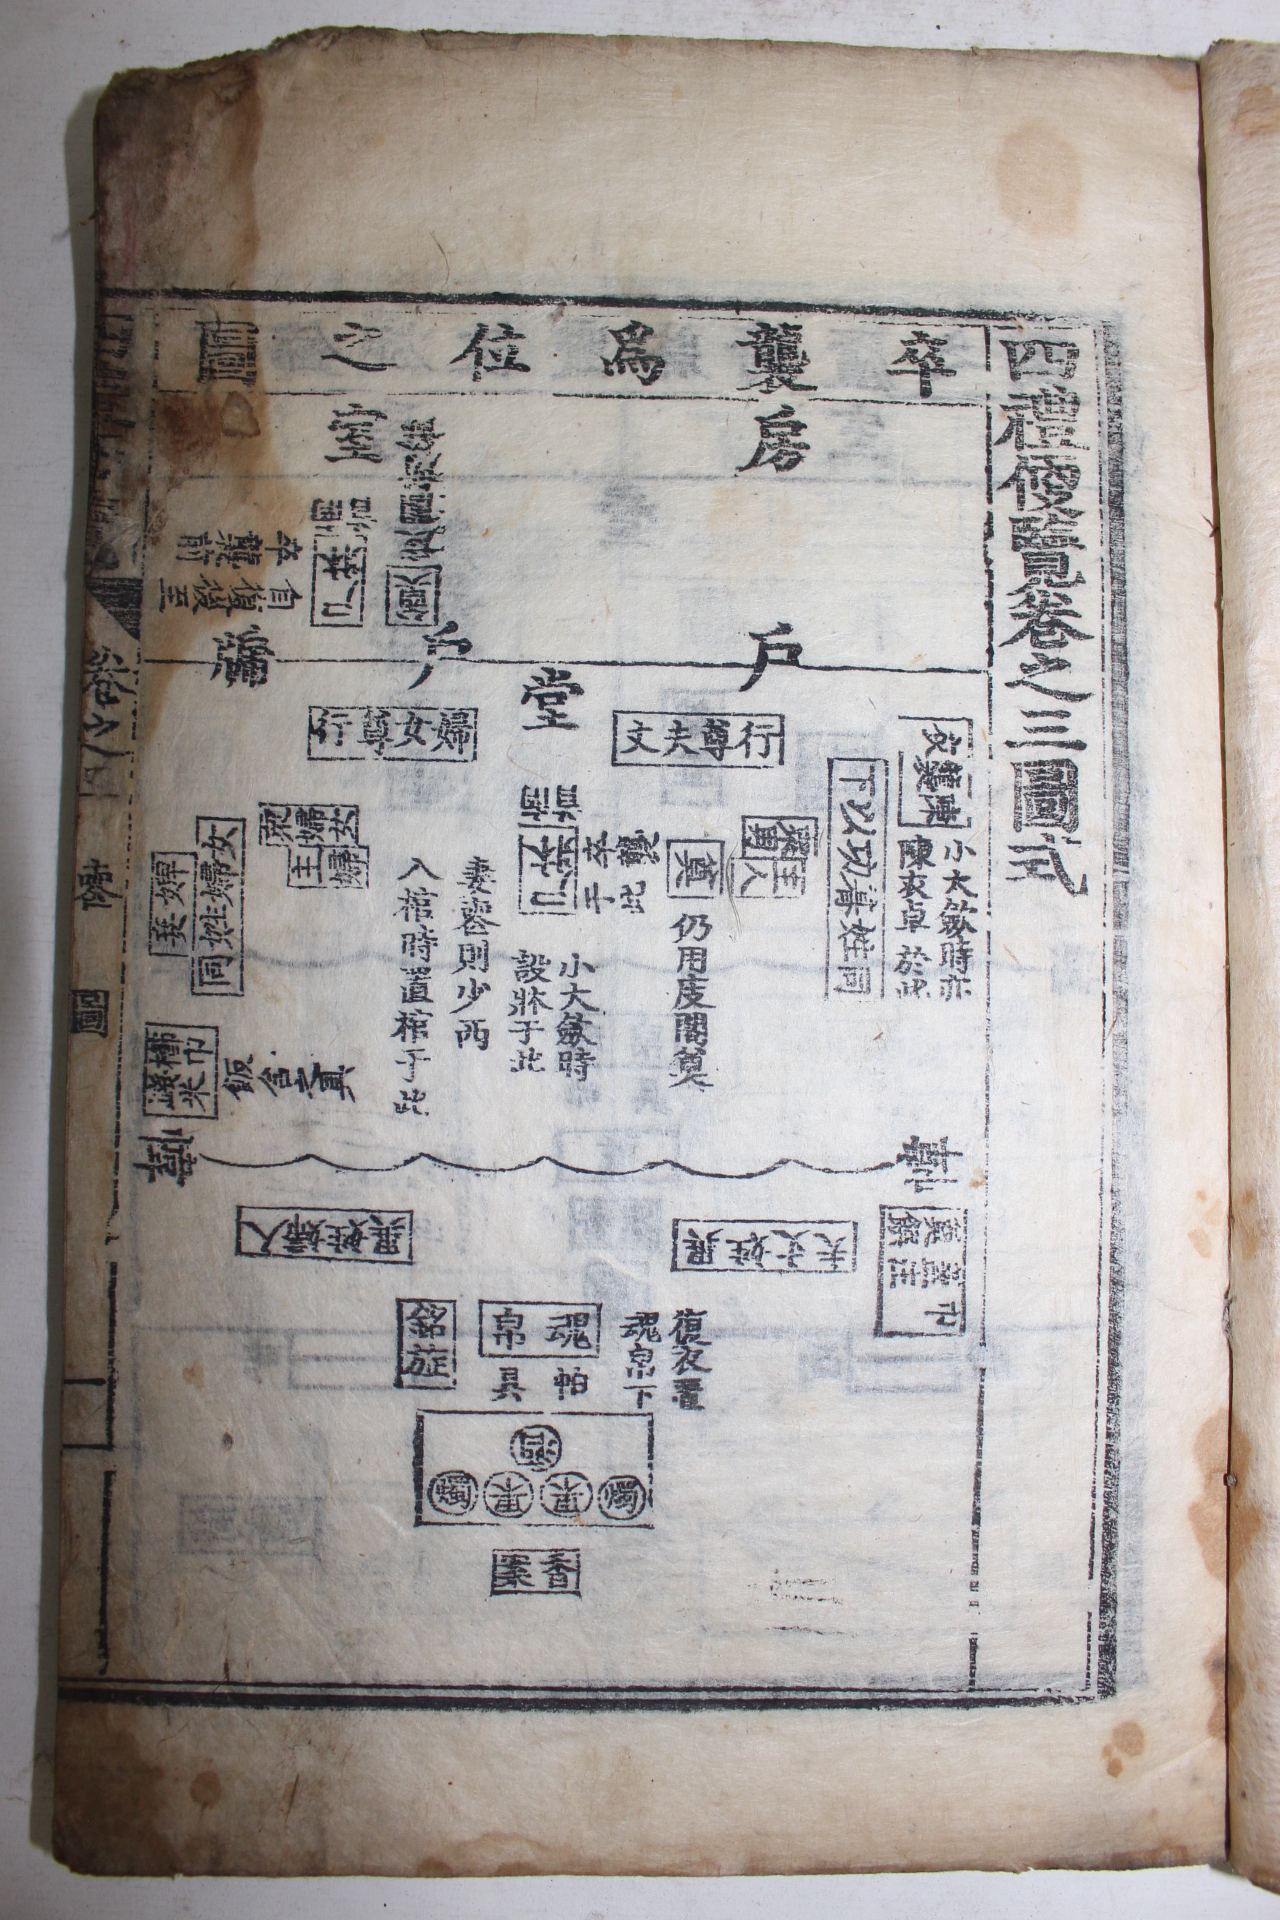 四禮便覽卷之三圖式
卒襲爲位之圖
房
室
自復後至
卒襲前
戶
戶
牖
堂
尊行丈夫
尊行婦女
同姓期功以下
陳襲衣
小大斂時亦
陳衣卓於此
主人
衆男
奠
仍用庋閣奠
卒襲
于此
小大斂時
設牀于此
妻喪則少西
入棺時置棺于此
主婦
衆婦女
同姓婦女
婢妾
飯含具
異姓丈夫
異姓婦人
復衣置
魂帛下
魂帛
帕具
銘旌
酒
燭
果
果
燭
香案
圖